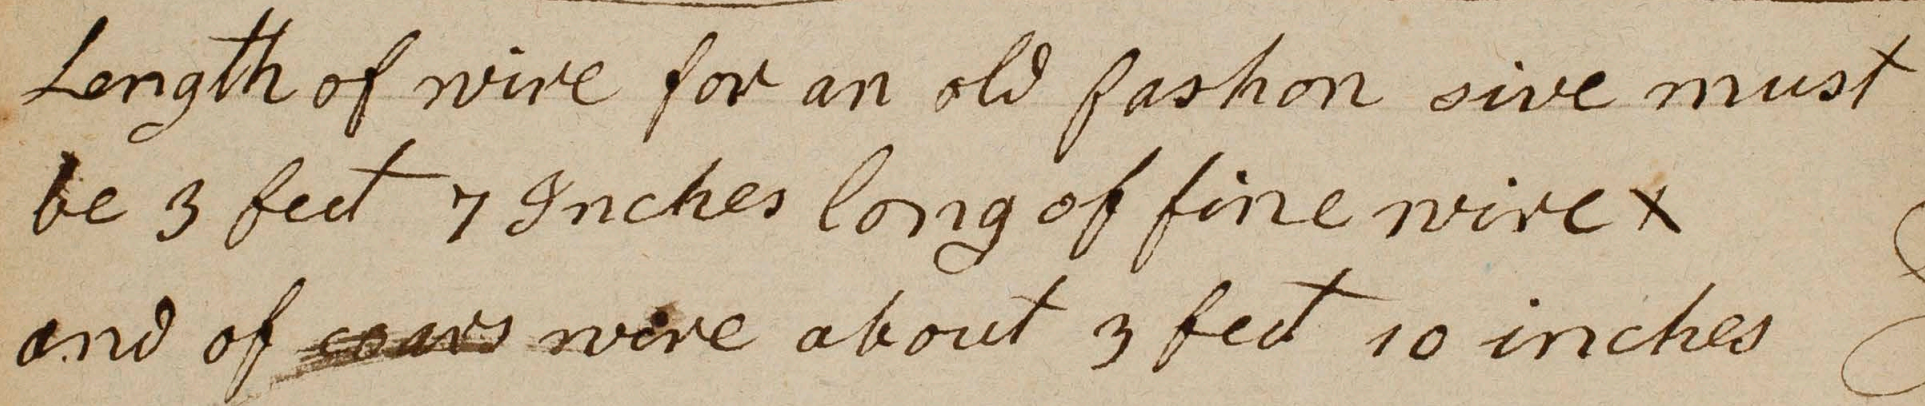 Length of wire for an old fashon sive must
be 3 feet 7 Inches long of fine wire x
and of coars wire about 3 feet 10 inches